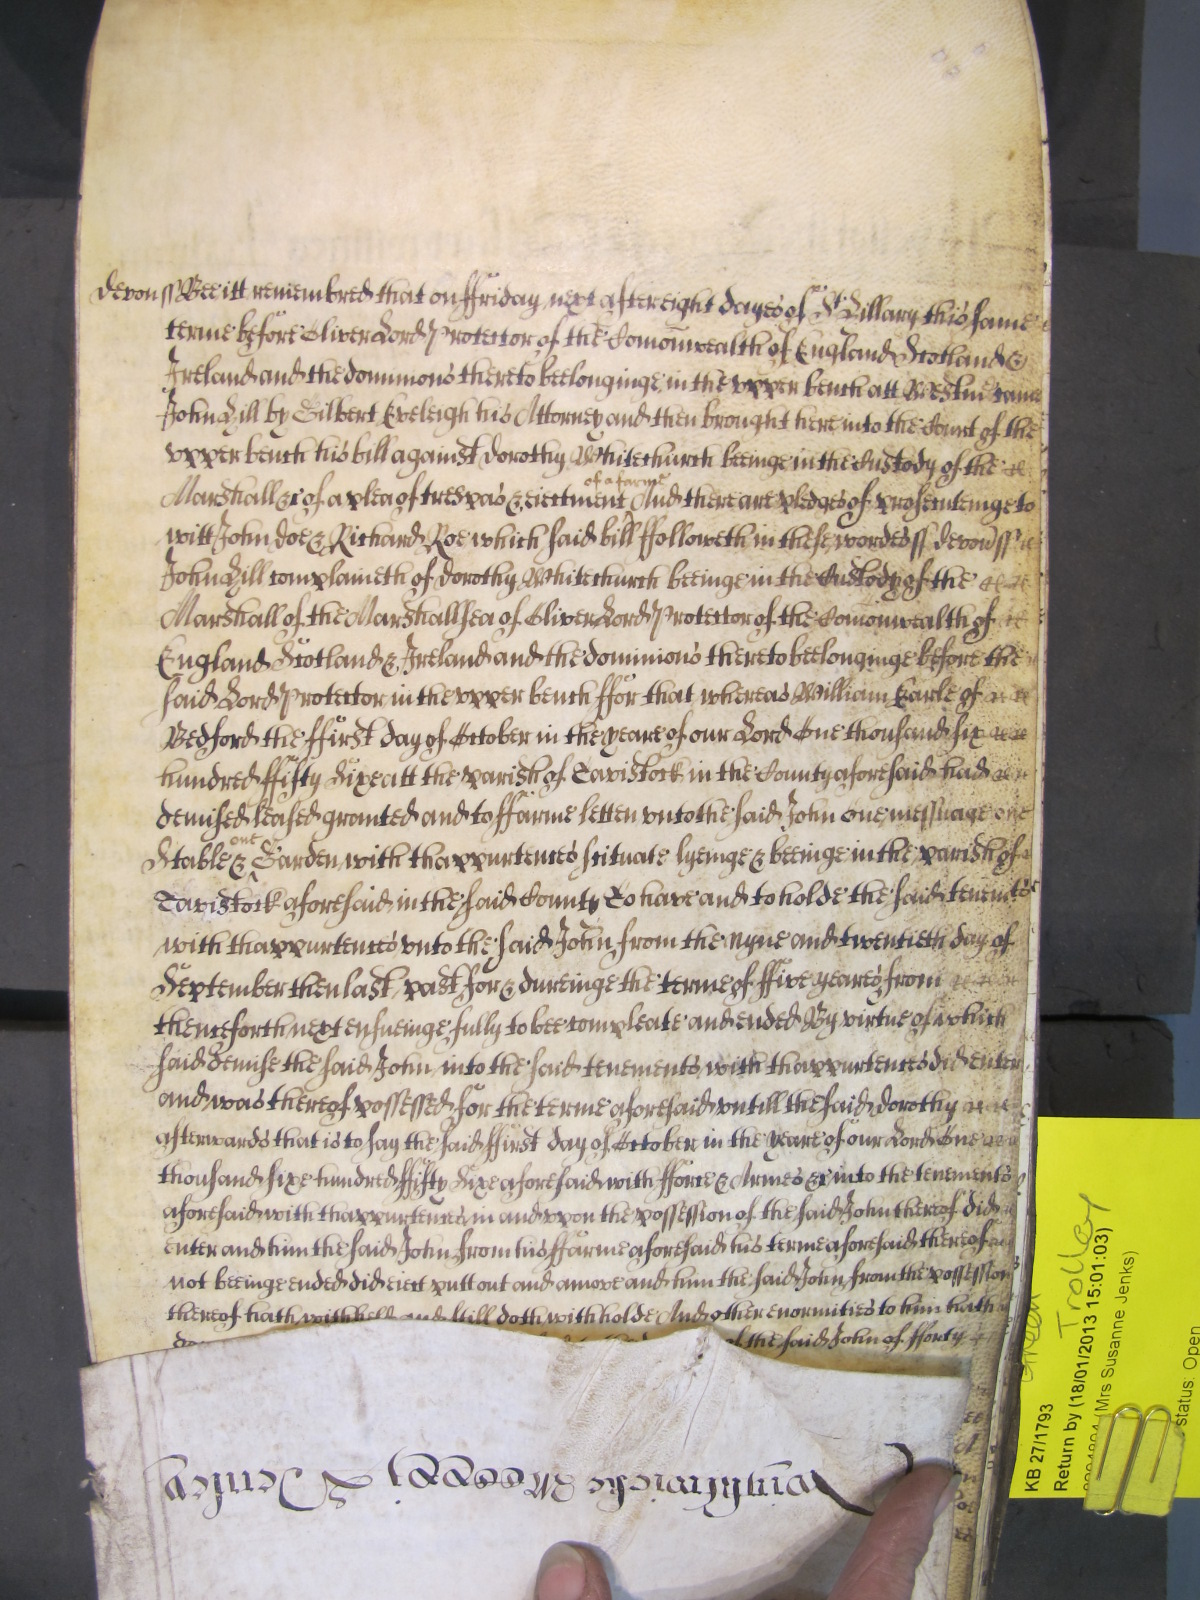 Devon ss Bee itt remembred that on ffriday next after eight dayes of St Hillary this same
terme before Oliver Lord Protector of the Comonwealth of England Scotland &
Ireland and the dominions thereto beelonginge in the vpper bench att Westm came
John Hill by Gilbert Eveleigh his Attorney and then brought here into the Court of the
vpper bench his bill against Dorothy Whitchurch beeinge in the Custody of the
Marshall &c of a plea of trespas & eiectment of a farme And there are pledges of prosecuteinge to
witt John Doe & Richard Roe which said bill ffolloweth in these wordes ss Devon ss
John Hill complaineth of Dorothy Whitchurch beeinge in the Custody of the
Marshall of the Marshallsea of Oliver Lord Protector of the Comonwealth of
England Scotland & Ireland and the dominions thereto beelonginge before the
said Lord Protector in the vpper bench ffor that whereas William Earle of
Bedford the ffirst day of October in the yeare of our Lord One thousand six
hundred ffifty Sixe att the parish of Tavistock in the County aforesaid had
demised leased granted and to ffarme letten vnto the said John one messuage one
Stable & one Garden with thappurtences scituate lyeinge & beeinge in the parish of
Tavistock aforesaid in the said County To have and to holde the said tenemts
with thappurtences vnto the said John from the nyne and twentieth day of
September then last past for & dureinge the terme of ffive yeares from
thenceforth next ensueinge fully to bee compleate and ended By virtue of which
said demise the said John into the said tenements with thappurtences did enter
and was thereof possessed for the terme aforesaid vntill the said Dorothy
afterwards that is to say the said ffirst day of October in the yeare of our Lord One
thousand sixe hundred ffifty Sixe aforesaid with fforce & Armes &c into the tenements
aforesaid with thappurtences in and vpon the possession of the said John thereof did
enter and him the said John from his ffarme aforesaid his terme aforesaid thereof
not beeinge ended did eiect putt out and amove and him the said John from the possession
thereof hath withheld and still doth withholde And other enormities to him hath
of the said John of fforty
KB 27/1793
Return by (18/01/2013 15:01:03)
(Mrs Susanne Jenks)
status: Open
Trolley